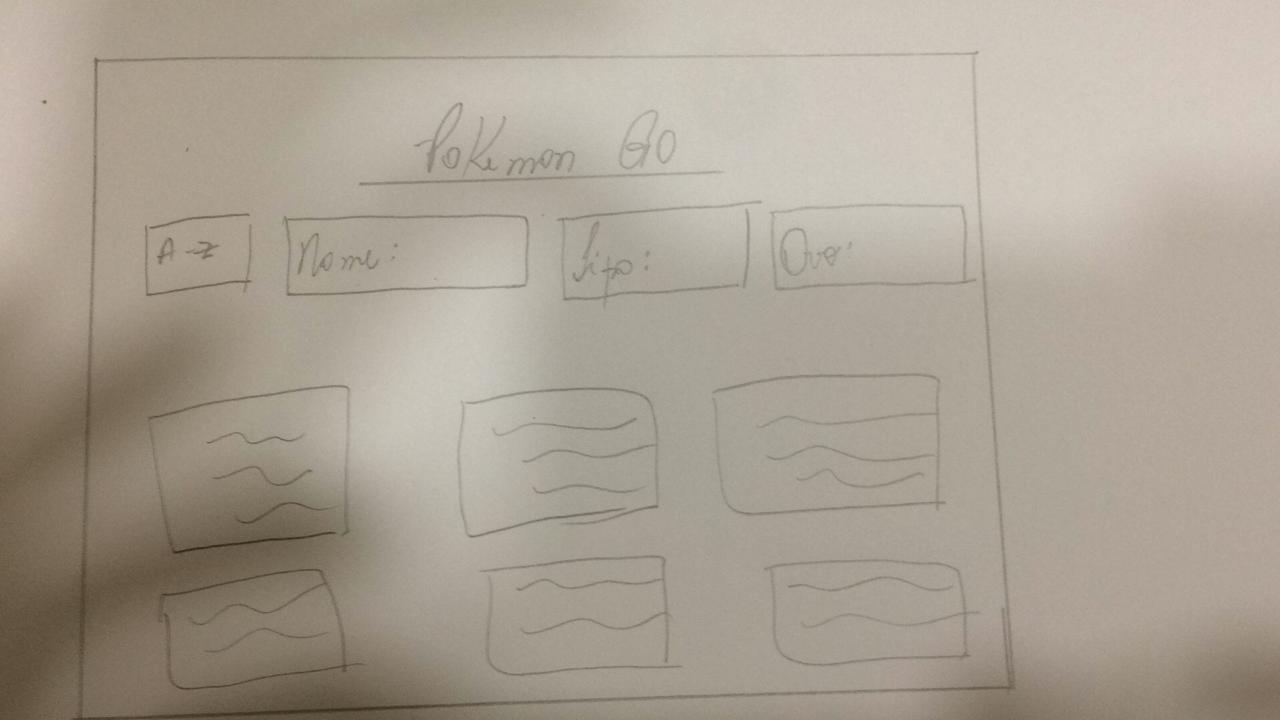 Pokemon GO
A-Z Nome: Tipo: Ovo: